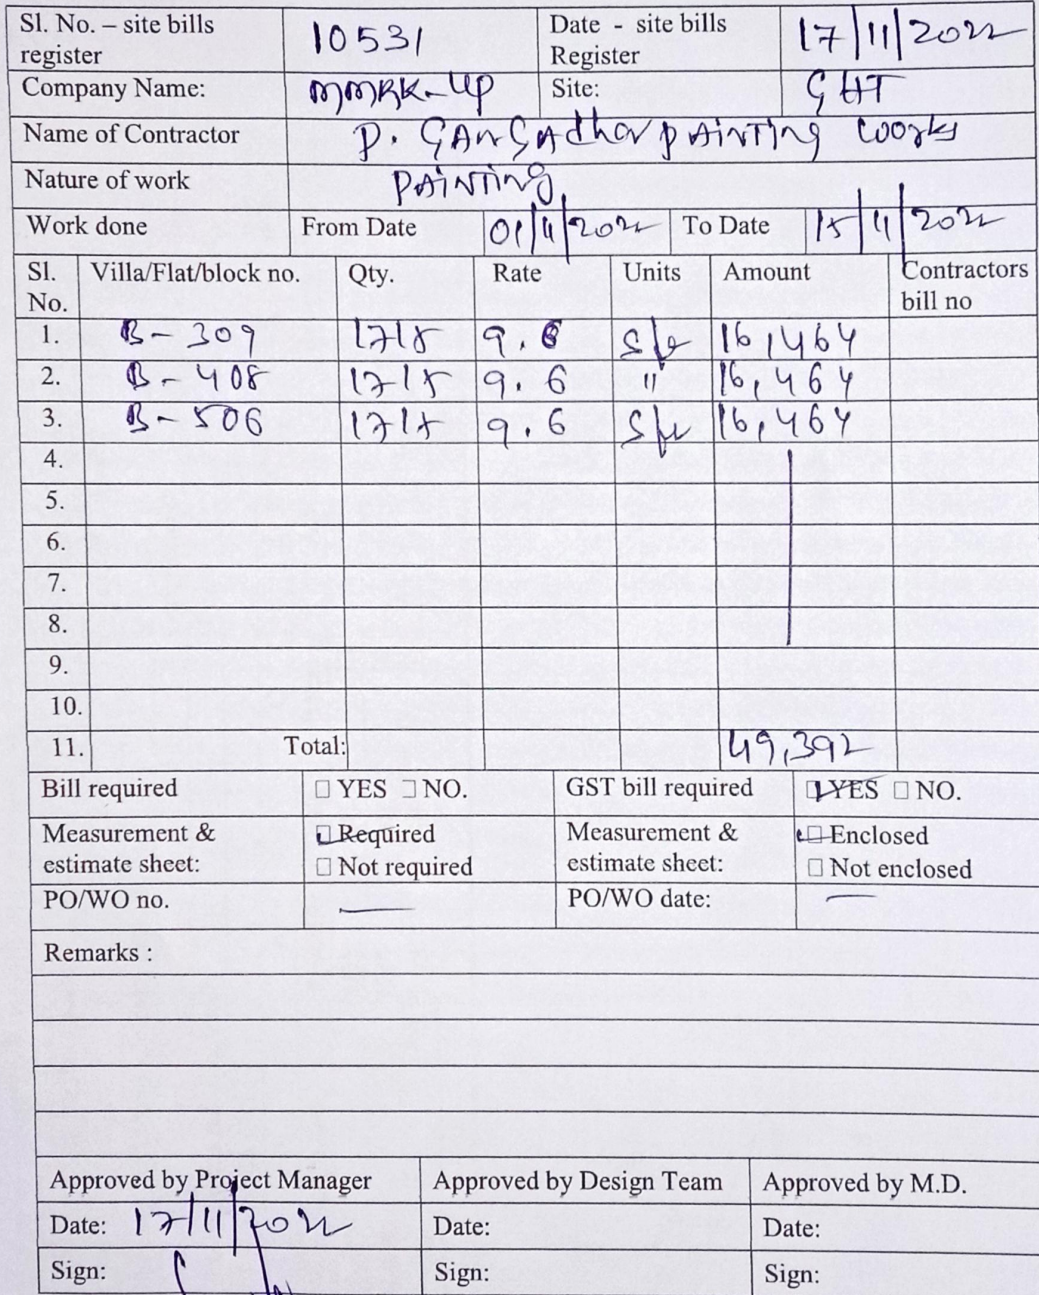 Sl. No. – site bills register 10531 Date – site bills Register 17/11/2022
Company Name: MMRK-UP Site: GHT
Name of Contractor P. GANGAdhar pAiNTiNg works
Nature of work pAiNTiNg
Work done From Date 01/11/2022 To Date 15/11/2022
Sl. No. Villa/Flat/block no. Qty. Rate Units Amount Contractors bill no
1. B - 309 1715 9.6 Sft 16,464
2. B - 408 1715 9.6 11 16,464
3. B - 506 1715 9.6 Sft 16,464
4.
5.
6.
7.
8.
9.
10.
11. Total: 49,392
Bill required □ YES □ NO. GST bill required □ YES □ NO.
Measurement & estimate sheet: □ Required Measurement & estimate sheet: □ Enclosed
□ Not required □ Not enclosed
PO/WO no. — PO/WO date: —
Remarks :
Approved by Project Manager Approved by Design Team Approved by M.D.
Date: 17/11/2022 Date: Date:
Sign: Sign: Sign: